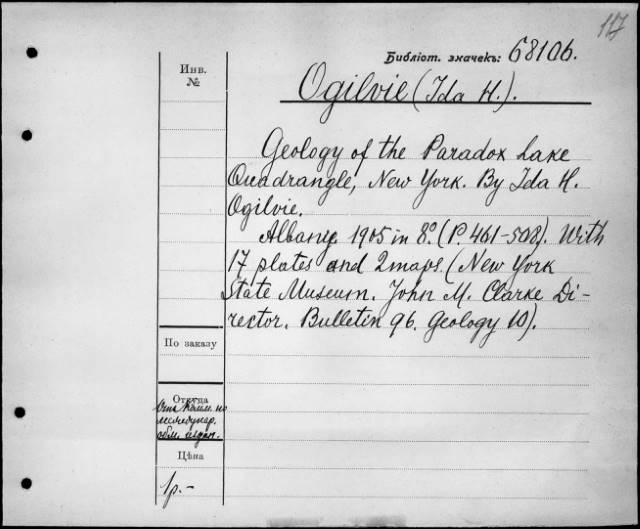 117
Библіот. значекъ: 68106.
Инв.
№
Ogilvie (Ida H.).
Geology of the Paradox Lake
Quadrangle, New York. By Ida H.
Ogilvie.
Albany 1905 in 8º. (P. 461-508). With
17 plates and 2 maps. (New York
State Museum. John M. Clarke Di-
rector. Bulletin 96. Geology 10).
По заказу
Откуда
Отъ Комм. по
междунар.
обм. издан.
Цѣна
1р.-